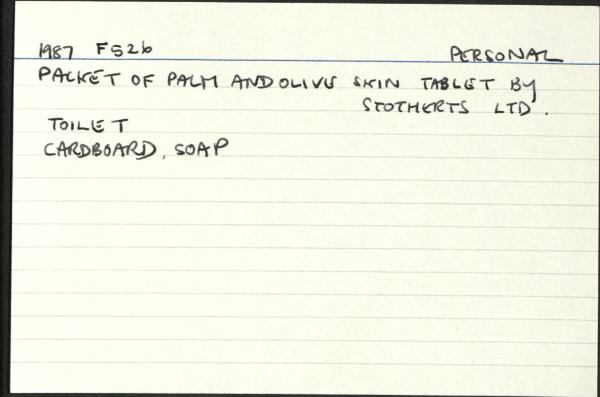 1987 F526 PERSONAL
PACKET OF PALM AND OLIVE SKIN TABLET BY
STOTHERTS LTD.
TOILET
CARDBOARD, SOAP